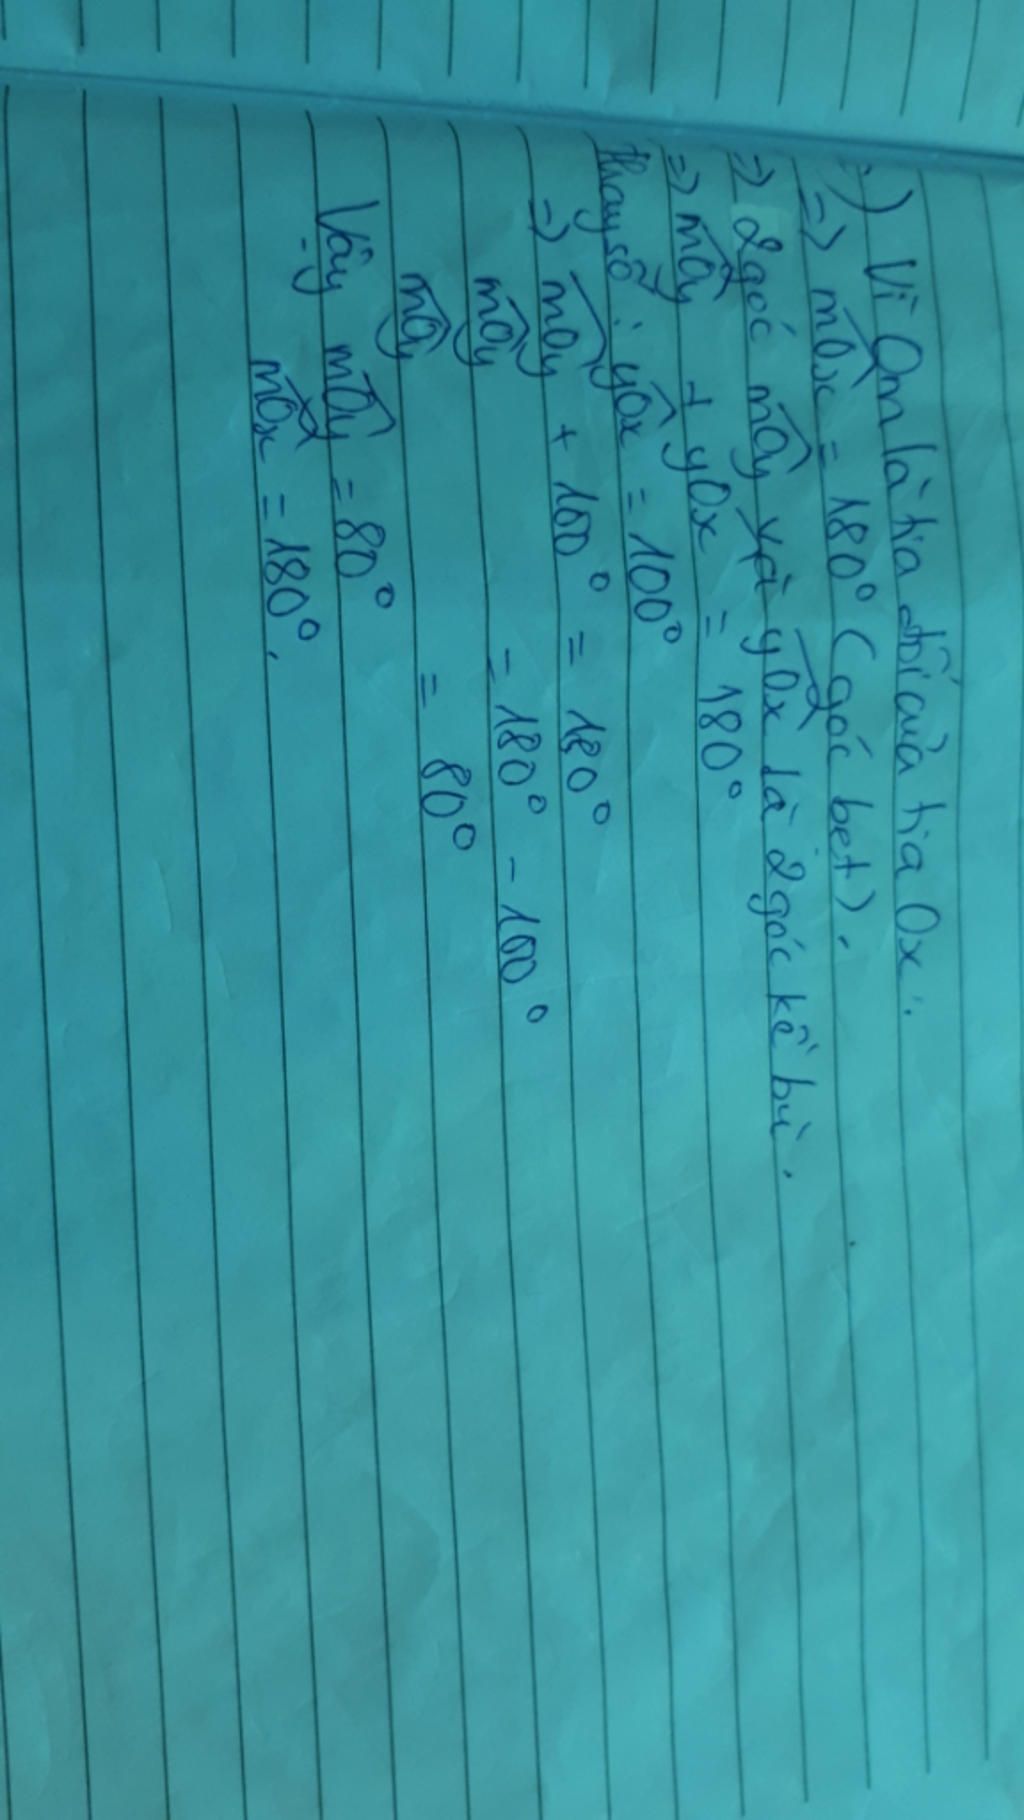 ) Vì Om là tia đối của tia Ox:
=> mOx = 180° (góc bẹt).
=> 2 góc mOy và yOx là 2 góc kề bù.
=> mOy + yOx = 180°
thay số: yOx = 100°
=> mOy + 100° = 180°
mOy = 180° - 100°
mOy = 80°
Vậy mOy = 80°
mOx = 180°.